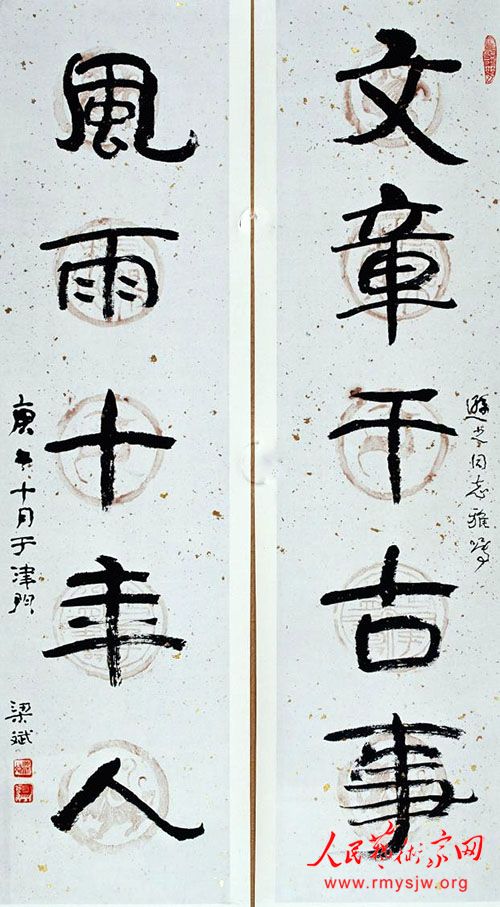 文章千古事
同志雅嘱
風雨十年人
庚午十月于津門
梁斌
人民藝術家网
www.rmysjw.org